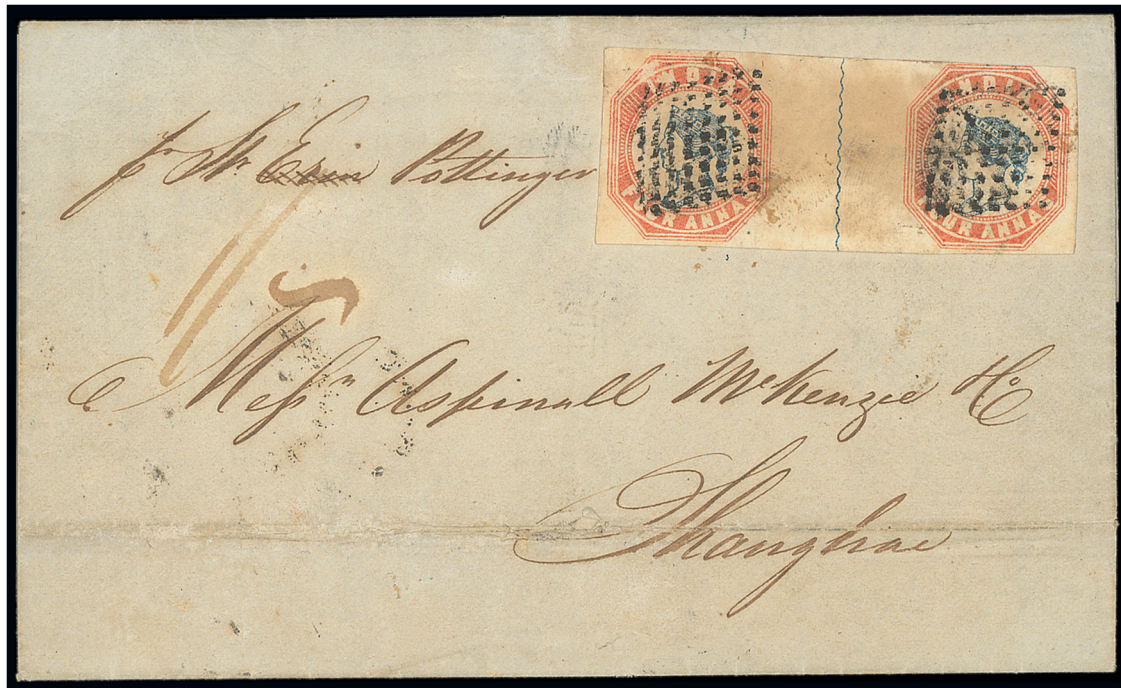 INDIA
INDIA
FOUR ANNAS
FOUR ANNAS
pr Str Erin Pottinger
Messrs Aspinall McKenzie & Co
Shanghae